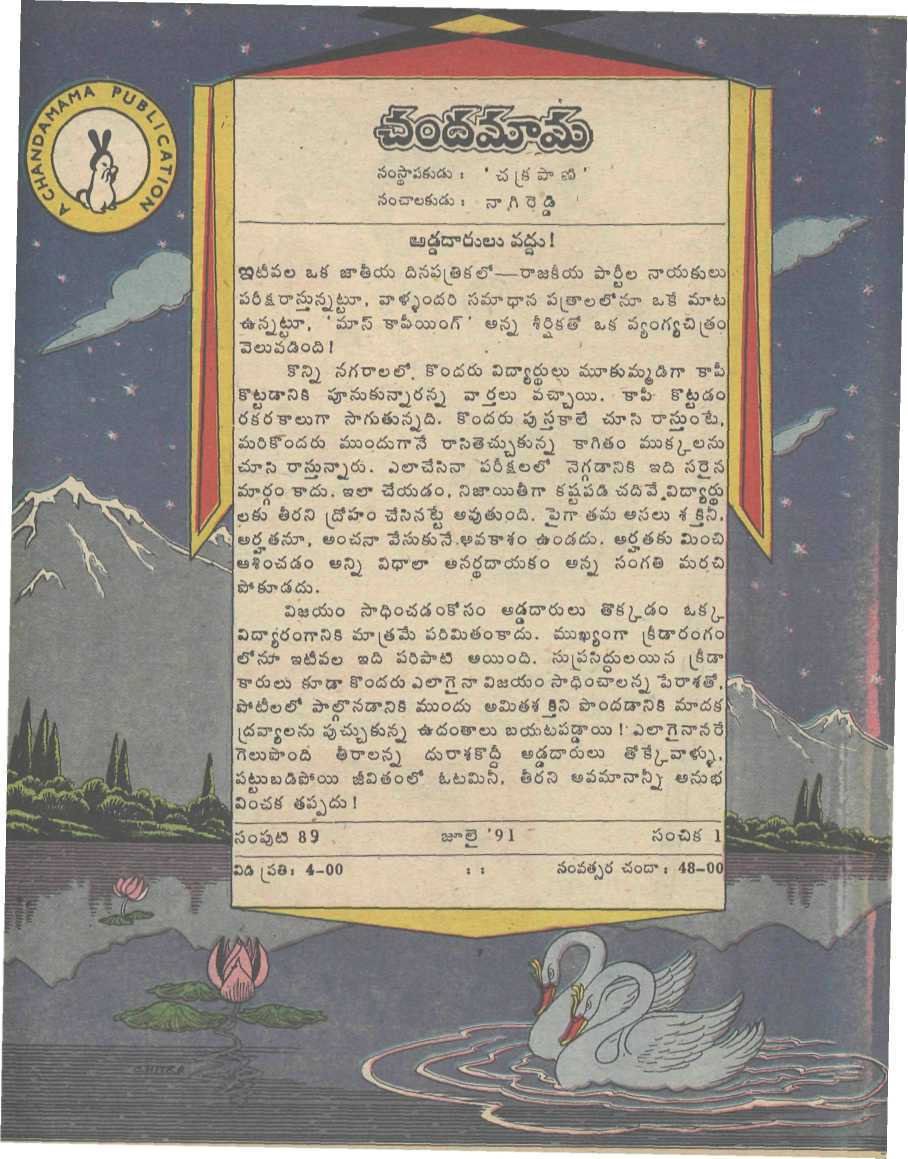 A CHANDAMAMA PUBLICATION
చందమామ
సంస్థాపకుడు : ' చక్రపాణి '
సంచాలకుడు : నాగిరెడ్డి
అడ్డదారులు వద్దు!
ఇటీవల ఒక జాతీయ దినపత్రికలో—రాజకీయ పార్టీల నాయకులు
పరీక్షరాస్తున్నట్టూ, వాళ్ళందరి సమాధాన పత్రాలలోనూ ఒకే మాట
ఉన్నట్టూ, 'మాస్ కాపీయింగ్' అన్న శీర్షికతో ఒక వ్యంగ్యచిత్రం
వెలువడింది!
కొన్ని నగరాలలో కొందరు విద్యార్థులు మూకుమ్మడిగా కాపీ
కొట్టడానికి పూనుకున్నారన్న వార్తలు వచ్చాయి. కాపీ కొట్టడం
రకరకాలుగా సాగుతున్నది. కొందరు పుస్తకాలే చూసి రాస్తుంటే,
మరికొందరు ముందుగానే రాసితెచ్చుకున్న కాగితం ముక్కలను
చూసి రాస్తున్నారు. ఎలాచేసినా పరీక్షలలో నెగ్గడానికి ఇది సరైన
మార్గం కాదు. ఇలా చేయడం, నిజాయితీగా కష్టపడి చదివే విద్యార్థు
లకు తీరని ద్రోహం చేసినట్టే అవుతుంది. పైగా తమ అసలు శక్తినీ,
అర్హతనూ, అంచనా వేసుకునే అవకాశం ఉండదు. అర్హతకు మించి
ఆశించడం అన్ని విధాలా అనర్థదాయకం అన్న సంగతి మరచి
పోకూడదు.
విజయం సాధించడంకోసం అడ్డదారులు తొక్కడం ఒక్క
విద్యారంగానికి మాత్రమే పరిమితంకాదు. ముఖ్యంగా క్రీడారంగం
లోనూ ఇటీవల ఇది పరిపాటి అయింది. సుప్రసిద్ధులయిన క్రీడా
కారులు కూడా కొందరు ఎలాగైనా విజయం సాధించాలన్న పేరాశతో,
పోటీలలో పాల్గొనడానికి ముందు అమితశక్తిని పొందడానికి మాదక
ద్రవ్యాలను పుచ్చుకున్న ఉదంతాలు బయటపడ్డాయి! ఎలాగైనాసరే
గెలుపొంది తీరాలన్న దురాశకొద్దీ అడ్డదారులు తొక్కేవాళ్ళు,
పట్టుబడిపోయి జీవితంలో ఓటమినీ, తీరని అవమానాన్నీ అనుభ
వించక తప్పదు!
సంపుటి 89 జూలై '91 సంచిక 1
విడి ప్రతి: 4-00 : : సంవత్సర చందా : 48-00
CHITRA